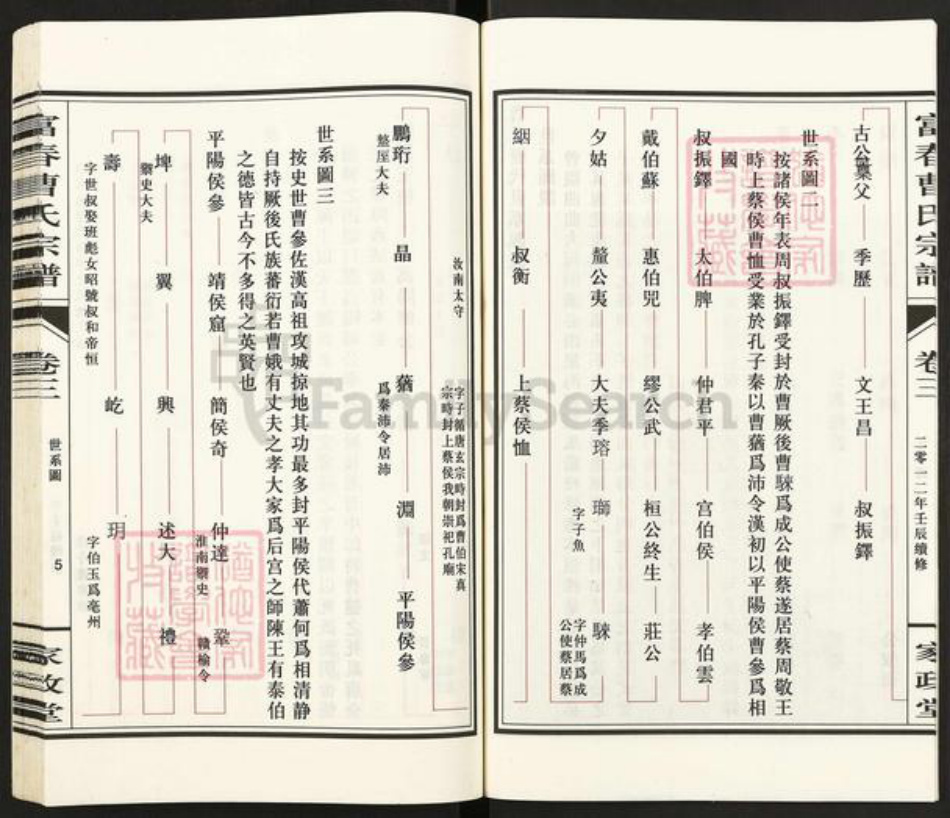 富春曹氏宗譜
卷三
二零一二年壬辰續修
家政堂
古公亶父 季歷 文王昌 叔振鐸
世系圖二
按諸侯年表周叔振鐸受封於曹厥後曹騋爲成公使蔡遂居蔡周敬王
時上蔡侯曹恤受業於孔子秦以曹蕕爲沛令漢初以平陽侯曹參爲相
國
叔振鐸 太伯脾 仲君平 宫伯侯 孝伯雲
戴伯蘇 惠伯兕 繆公武 桓公終生 莊公
夕姑 釐公夷 大夫季瑢 瑡 騋
字子魚
字仲馬爲成
公使蔡居蔡
絪 叔衡 上蔡侯恤
字子循唐玄宗時封爲曹伯宋真
宗時封上蔡侯我朝崇祀孔廟
汝南太守
鵬珩 晶 蕕 淵 平陽侯參
盩厔大夫
爲秦沛令居沛
世系圖三
按史世曹參佐漢高祖攻城掠地其功最多封平陽侯代蕭何爲相清静
自持厥後氏族蕃衍若曹娥有丈夫之孝大家爲后宫之師陳王有泰伯
之德皆古今不多得之英賢也
平陽侯參 靖侯窟 簡侯奇 仲達 鞏
淮南御史
贛榆令
埤 翼 興 述大 禮
御史大夫
壽 屹 玥
字世叔娶班彪女昭號叔和帝恒
字伯玉爲亳州
富春曹氏宗譜
卷三
世系圖
5
家政堂
FamilySearch